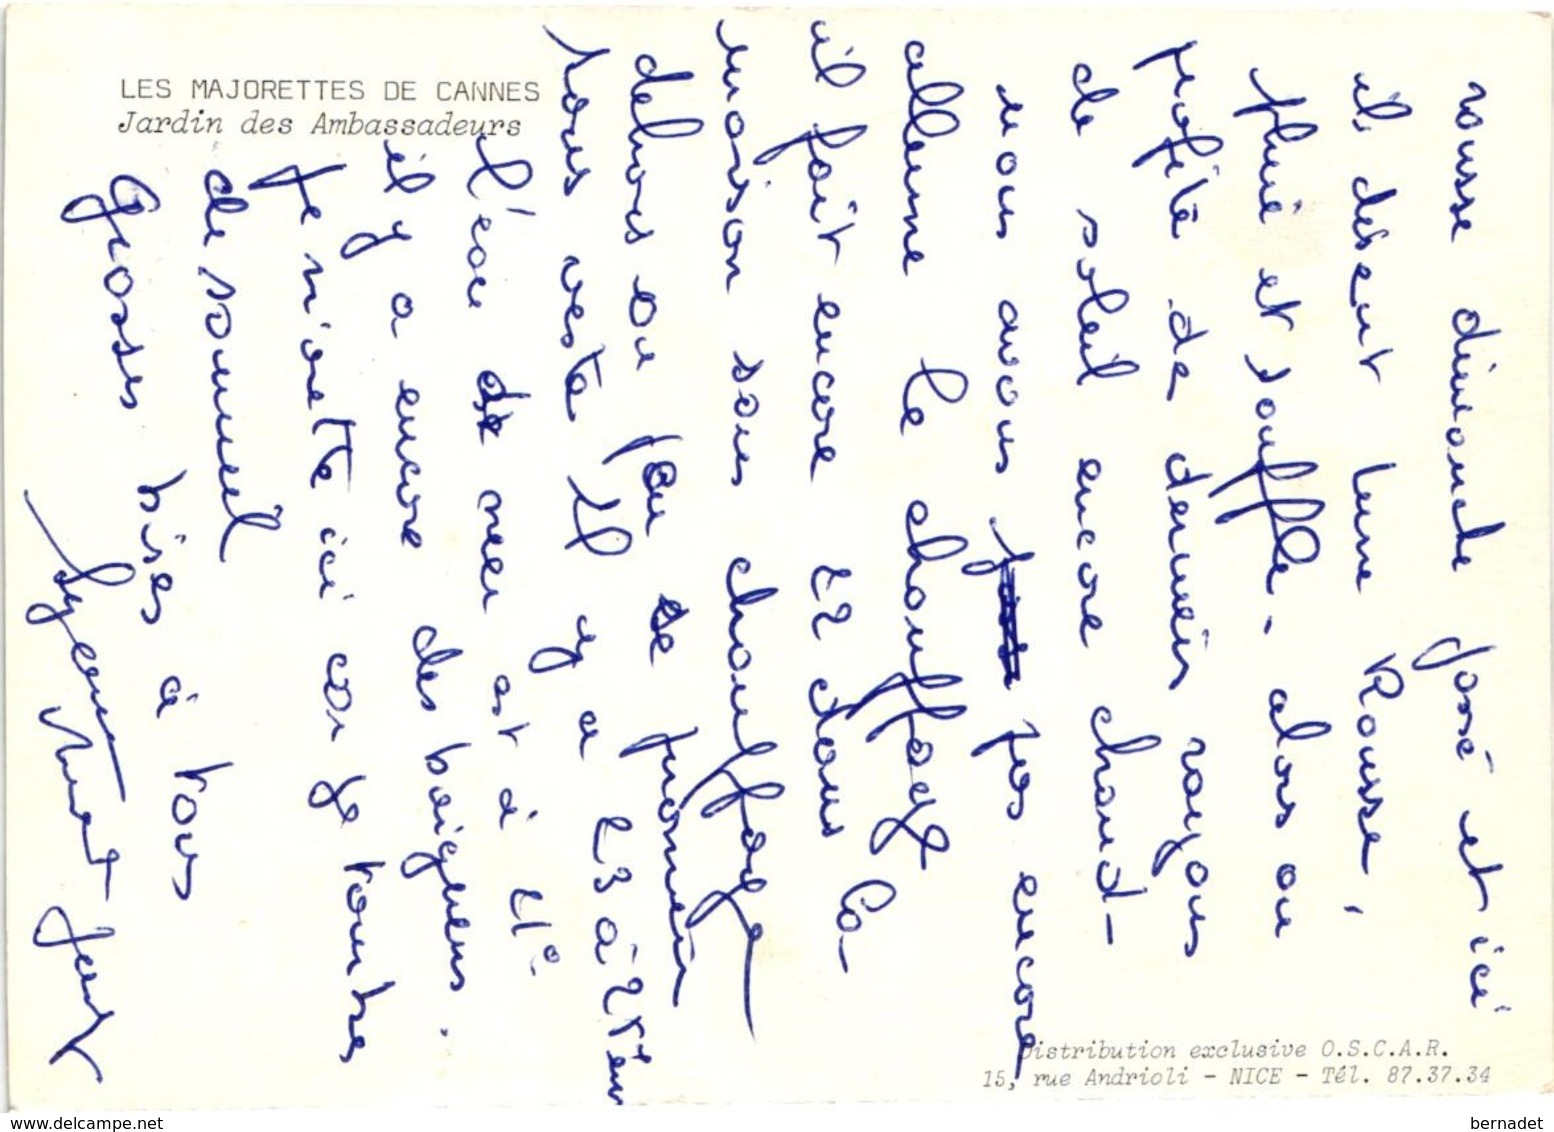 LES MAJORETTES DE CANNES
Jardin des Ambassadeurs
rousse dimanche José et ici
ils disent lune Rousse,
pluie et souffle. alors on
profite de derniers rayons
de soleil encore chaud-
nous avons pas encore
allume le chauffage
il fait encore 22 dans la
maison sans chauffage
dehors on peu se promener
sans veste Il y a 23 à 25 en
l'eau de mer est à 21°
il y a encore des baigneurs.
Je m'arette ici car je tombes
de sommeil
Grosses bises à tous
Distribution exclusive O.S.C.A.R.
15, rue Andrioli - NICE - Tél. 87.37.34
www.delcampe.net
bernadet